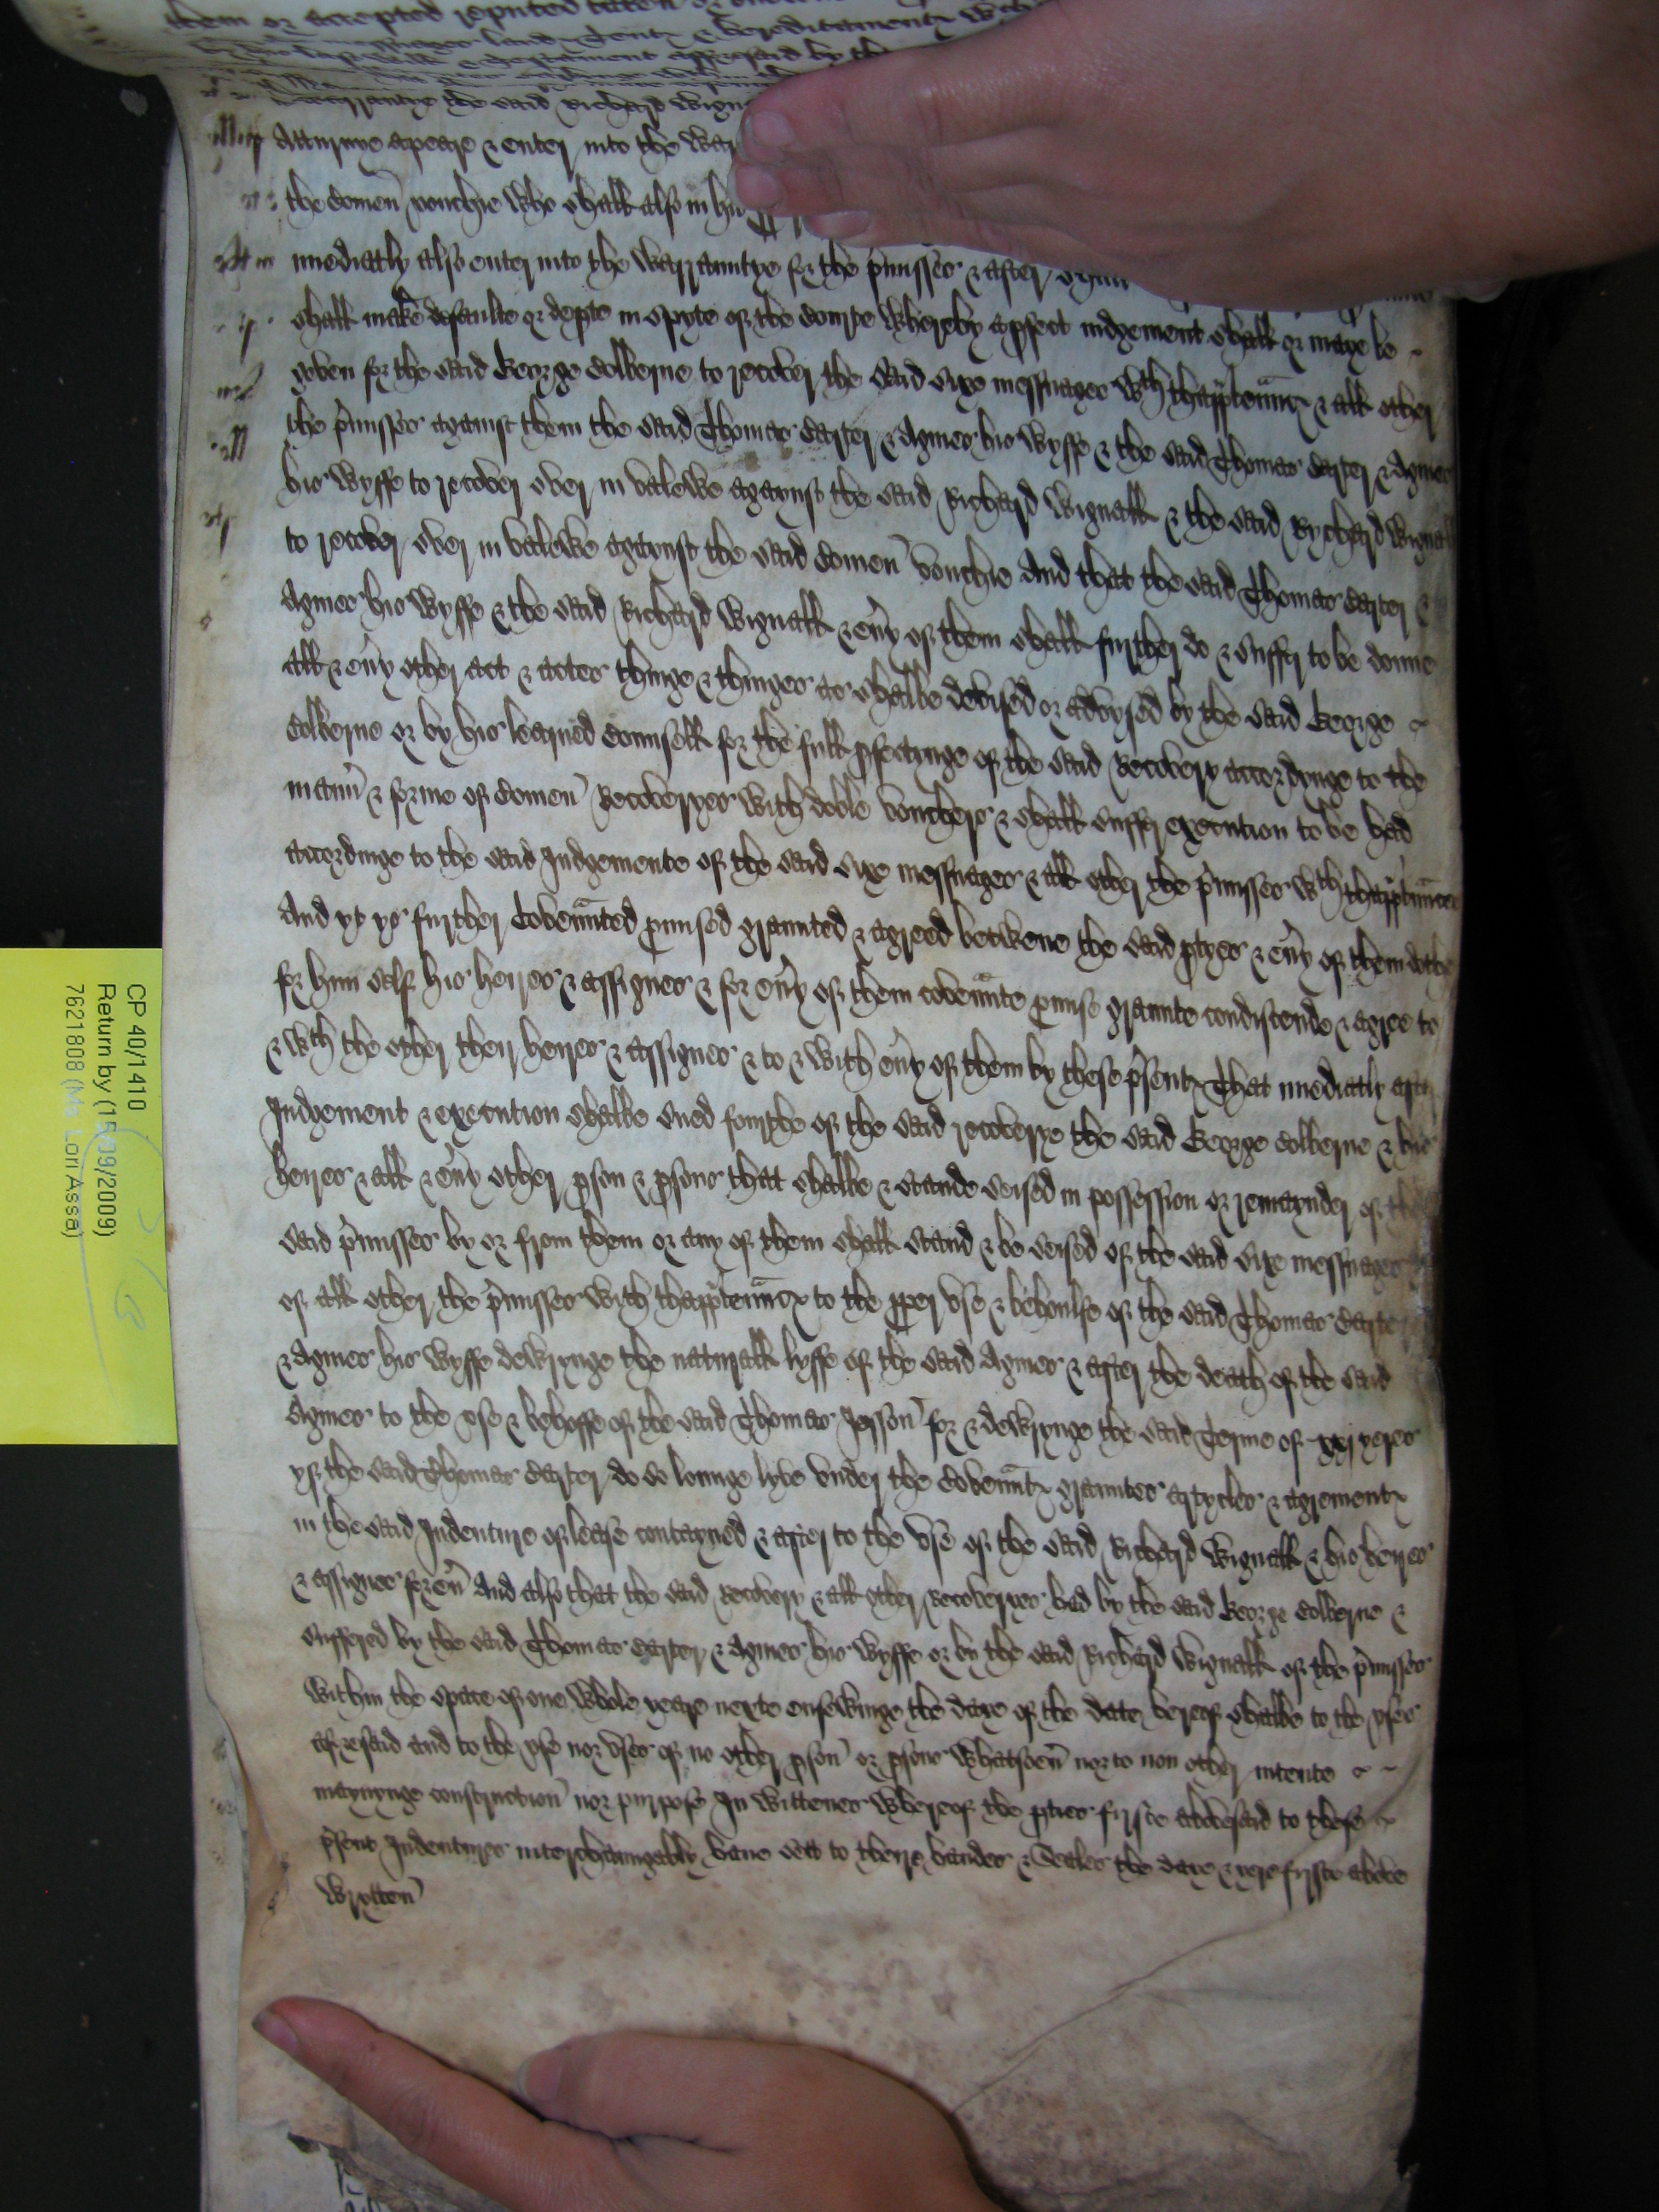 them or accepted reputed taken or
messuages land tent & hereditament wth
the said Richard Wign
Atturnye apeare & enter into the war
the comen vouchie who shall also in h
imediatly also enter into the warrauntye for the p'misses & after
shall make defaulte or depte in spyte of the courte whereby a pfect iudgement shall or maye be
yoven for the said George Colborne to recover the said syxe messuages wth thapptenn'c & all other
the p'misses agaynst them the said Thomas Carter & Agnes his wyffe & the said Thomas Carter & Agnes
his wyffe to recover over in valewe agaynst the said Richard Wignall & the said Rychard Wignall
to recover over in valewe agaynst the said comen vouchie And that the said Thomas Carter &
Agnes his wyffe & the said Richard Wignall & eny of them shall further do & suffer to be donne
all & eny other act & actes thinge & thinges as shalbe devised or advysed by the said George
Colborne or by his learned counsell for the full pfectinge of the said Recovery accordinge to the
mann' & forme of comen Recoveryes with doble vouchers & shall suffer execution to be had
accordinge to the said Iudgemente of the said syxe messuages & all other the p'misses wth thapptennces
And yt ys further Covennted pmised graunted & agreed betwene the said ptyes & eny of them dothe
for him self his heires & assignes & for eny of them covennte pmise graunte condiscende & agree to
& wth the other their heires & assignes & to & with eny of them by these p'sent That imediatly after
Iudgement & execution shalbe sued fourthe of the said recoverye the said George Colborne & his
heires & all & eny other pson & psons that shalbe & stande seised in possession or remaynder of the
said p'misses by or from them or any of them shall stand & be seised of the said syxe messuages
of all other the p'misses with thapptenn'c to the pper vse & behoulfe of the said Thomas Carter
& Agnes his wyffe dewrynge the naturall lyffe of the said Agnes & after the death of the said
Agnes to the vse & behoffe of the said Thomas Jesson for & dewrynge the said Terme of xxj yeres
yf the said Thomas Carter do so lounge lyve vnder the Covennt grauntes artycles & agrement
in the said Indenture of lease contayned & after to the vse of the said Richard Wignall & his heires
& assignes for en' And also that the said Recovery & all other Recoveryes had by the said George Colborne &
suffered by the said Thomas Carter & Agnes his wyffe or by the said Richard Wignall of the p'misses
within the space of one whole yeare nexte ensewinge the daye of the date hereof shalbe to the vses
aforesaid and to the vse nor vses of no other pson or psons whatsoen' nor to non other intente
maynynge construction nor purpose In wittenes whereof the pties firste abovesaid to these
p'sent Indentures interchaungably haue sett to theire handes & Seales the daye & yere firste above
wrytten
CP 40/1410
Return by (15/09/2009)
7621808 (Ms Lori Assa)